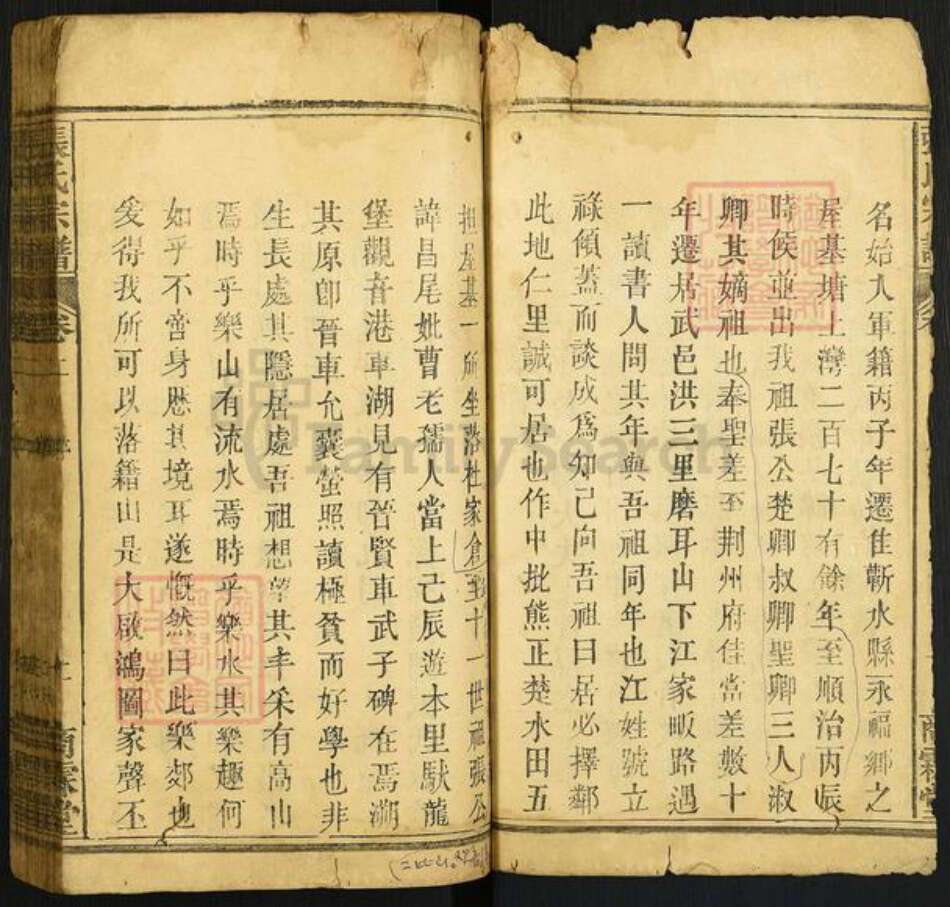 名始入軍籍丙子年遷隹蘄水縣永福鄉之
屋基塘上灣二百七十有餘年至順治丙辰
時候並出我祖張公楚卿叔卿聖卿三人淑
卿其嫡祖也奉聖差至荆州府佳當差數十
年遷居武邑洪三里磨耳山下江家畈路遇
一讀書人問其年與吾祖同年也江姓號立
祿傾蓋而談成為知己向吾祖曰居必擇鄰
此地仁里誠可居也作中批熊正楚水田五
担屋基一所坐落杜家倉至十一世祖張公
諱昌尾妣曹老孺人當上己辰遊本里馱龍
堡觀音港車湖見有晉賢車武子碑在焉溯
其原卽晉車允囊螢照讀極貧而好學也非
生長處其隱居處吾祖想望其丰采有高山
焉時乎樂山有流水焉時乎樂水其樂趣何
如乎不啻身歷其境耳遂慨然曰此樂郊也
爰得我所可以落籍山是大啟鴻圖家聲丕
張氏宗譜
卷
南霖堂
FamilySearch